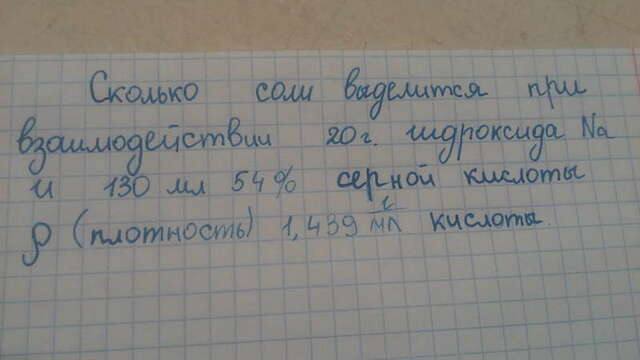 Сколько соли выделится при
взаимодействии 20 г. гидроксида Na
и 130 мл 54% серной кислоты
ρ (плотность) 1,439 г/мл кислоты.